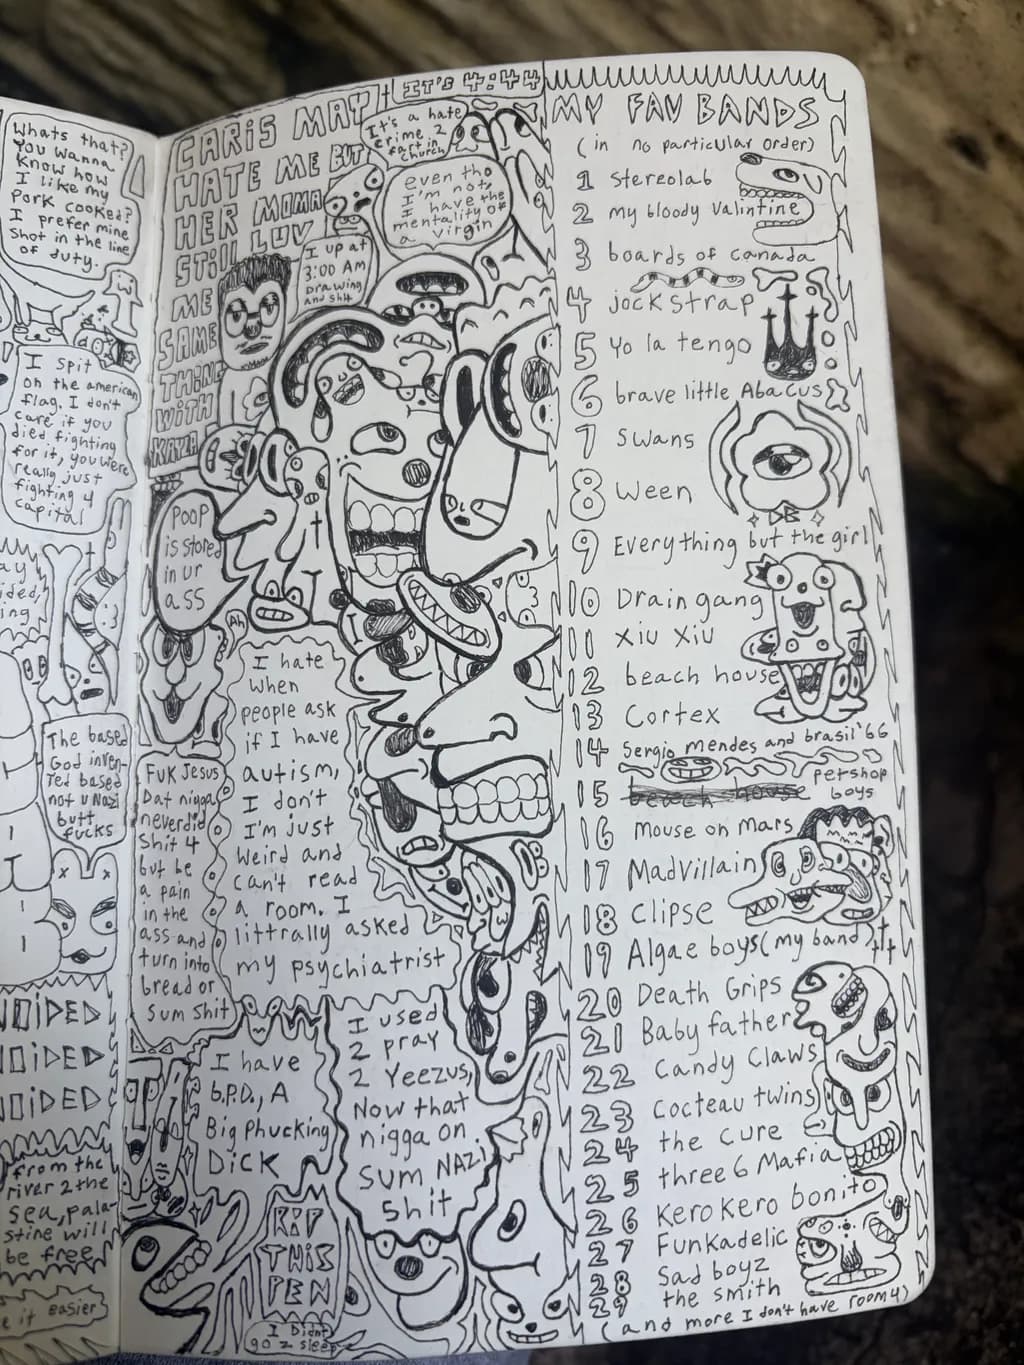 Whats that?
You wanna
know how
I like my
Pork cooked?
I prefer mine
Shot in the line
of duty.
I spit
on the american
flag. I don't
care if you
died fighting
for it, you were
really just
fighting 4
capital
The based
God inven-
ted based
not u Nazi
butt
fucks
from the
river 2 the
sea, pala-
stine will
be free
it easier
CARIS MAY
HATE ME BUT
HER MOMA
STILL LUV
ME
SAME
THING
WITH
KAYLA
IT'S 4:44
It's a hate
crime 2
fart in
church
even tho
I'm not,
I have the
mentality of
a virgin
I up at
3:00 AM
Drawing
and sh4
POOP
is stored
in ur
ass
Ah
I hate
when
people ask
if I have
autism,
I don't
I'm just
weird and
can't read
a room. I
littrally asked
my psychiatrist
Fuk Jesus
Dat nigga
never did
Shit 4
but be
a pain
in the
ass and
turn into
bread or
sum shit
I have
B.P.D., A
Big Phucking
DiCK
I used
2 pray
2 Yeezus,
Now that
nigga on
sum NAZi
Shit
RiP
THiS
PEN
I Didnt
go 2 sleep
MY FAV BANDS
(in no particular order)
1 stereolab
2 my bloody valintine
3 boards of canada
4 jockstrap
5 Yo la tengo
6 brave little Abacus
7 Swans
8 Ween
9 Everything but the girl
10 Drain gang
11 Xiu Xiu
12 beach house
13 Cortex
14 Sergio mendes and brasil '66
15 beach house petshop
boys
16 mouse on Mars
17 Madvillain
18 Clipse
19 Algae boys (my band)
20 Death Grips
21 Baby father
22 Candy Claws
23 Cocteau twins
24 the cure
25 three 6 Mafia
26 Kero kero bonito
27 Funkadelic
28 Sad boyz
29 the smith
(and more I don't have room 4)